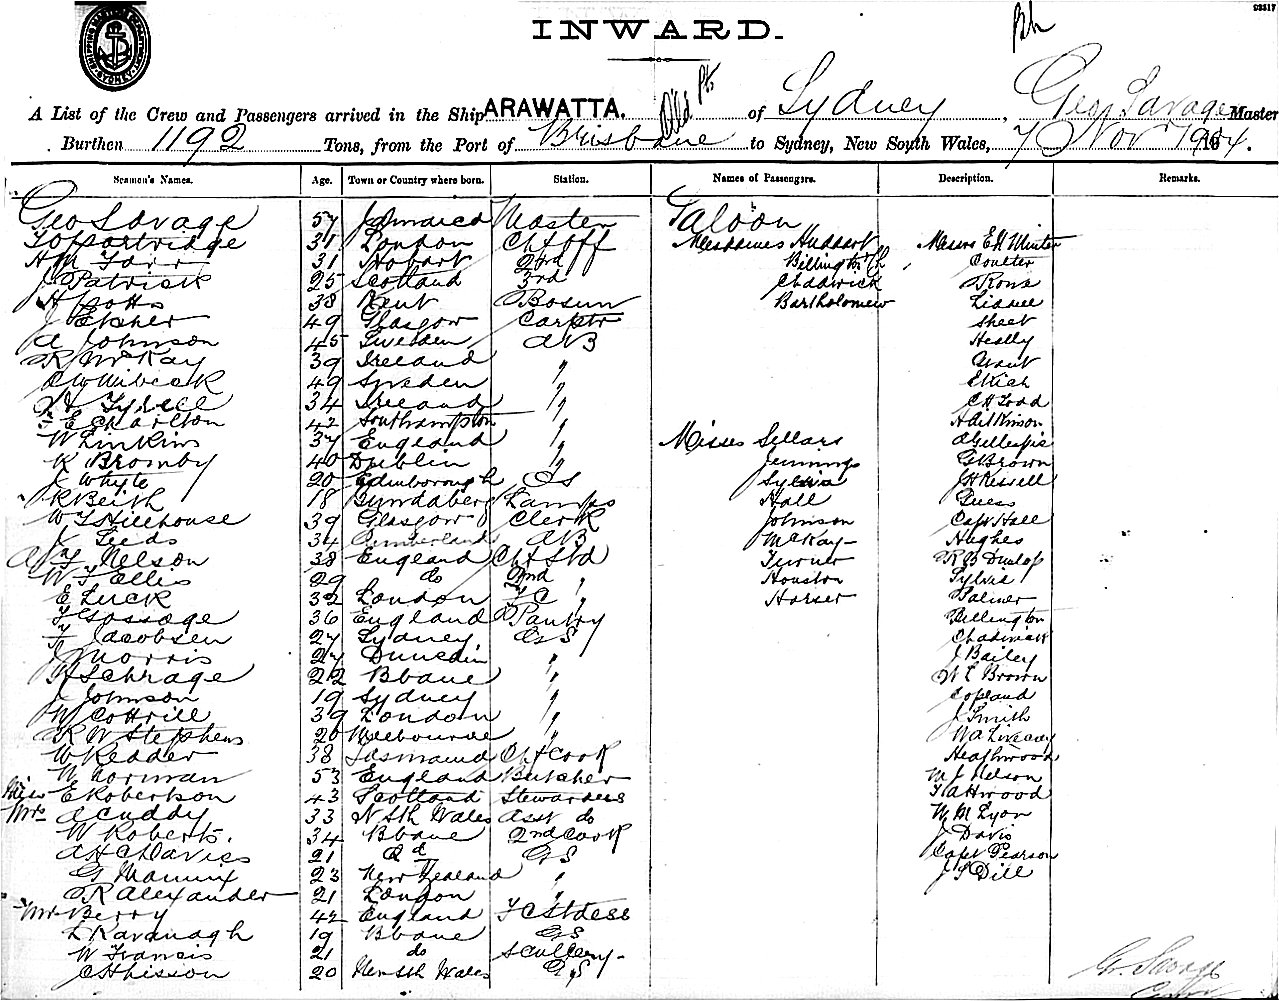 93517
Bh
SHIPPING MASTER'S DEPARTMENT SYDNEY
INWARD.
A List of the Crew and Passengers arrived in the Ship ARAWATTA. of Sydney, Geo Savage Master
Burthen 1192 Tons, from the Port of Brisbane to Sydney, New South Wales, 7 Nov 1904.
Seamen's Names. Age. Town or Country where born. Station. Names of Passengers. Description. Remarks.
Geo Savage 57 Jamaica Master Saloon
Partridge 31 London Ch Off Mesdames Huddart Messrs E H Winter
H M 31 Hobart 2nd Billington Coulter
J Patrick 25 Scotland 3rd Chadwick
A Potts 38 Kent Bosun Bartholomew
J 49 Glasgow Carptr Sheet
A Johnson 45 Sweden AB Heally
R McKay 39 Ireland "
49 Sweden " E Rich
34 Ireland " C H Todd
E Charlton 42 Southampton " H Dilkinson
W Linkins 37 England " Misses Sellars A Gillespie
K Bromby 40 Dublin " Jennings G Brown
J Whyte 20 Edinborough OS Sylvia J H Russell
R Beith 18 Bundaberg Lamps Hall Guess
W T Hillhouse 39 Glasgow Clerk Johnson Capt Hall
J Leeds 34 Cumberland AB McKay Hughes
Nelson 38 England Ch Std Turner R B Dunlop
W T Ellis 29 do 2nd " Houston Sylvia
E Luck 32 London FC " Horser Palmer
T Gossage 36 England Pantry Billington
Jacobsen 27 Sydney GS Chadwick
J Morris 27 Dunedin " J Bailey
H Schrage 22 Bbane " W L Brown
J Johnson 19 Sydney " Copland
W Cottrill 39 London " J Smith
R W Stephens 20 Melbourne " W A Liveday
W Kedder 38 Tasmania Ch Cook Heathwood
W Norman 53 England Butcher W J Nelson
Miss E Robertson 43 Scotland Stewardess T Attwood
Mrs A Cuddy 33 N Sth Wales Asst do W M Lyon
W Roberts. 34 Bbane 2nd Cook J Davis
A H C Davies 21 Qd GS Capt Pearson
G Manny 23 New Zealand " J S Dill
R Alexander 21 London "
Mrs Berry 42 England FC Stdess
L Kavanagh 19 Bbane GS
W Francis 21 do Scullery
C H hisson 20 New Sth Wales GS
G. Savage